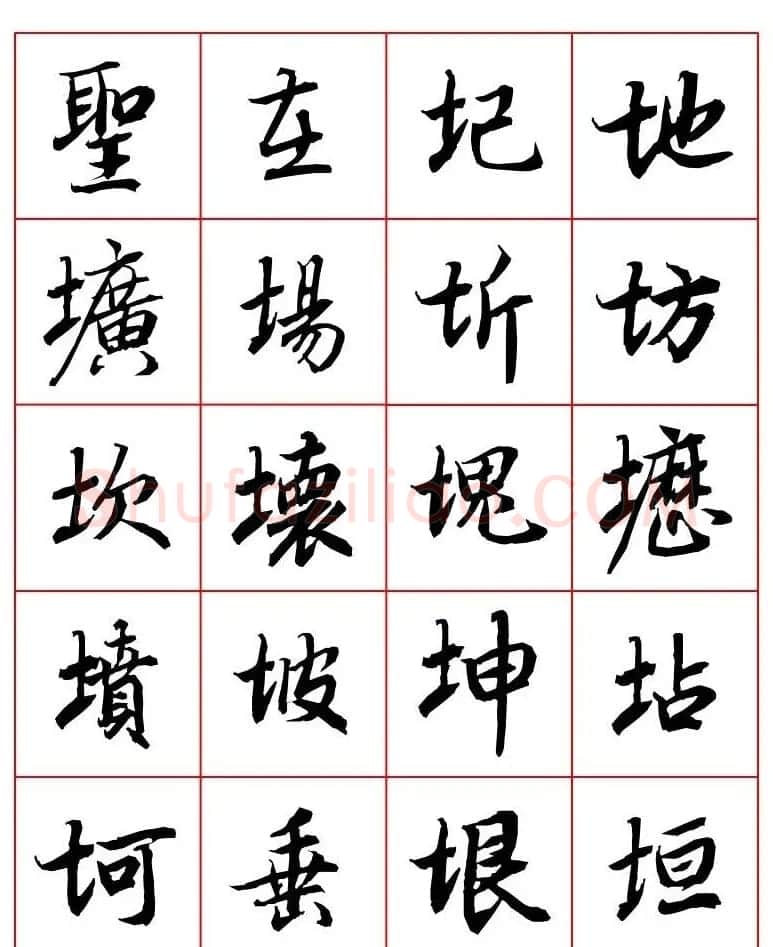 聖在圯地
壙場圻坊
坎壞塊壢
墳坡坤坫
坷垂垠垣
shufaziliao.com